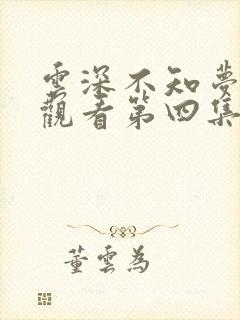 雲深不知夢
觀看第四集
董雲為